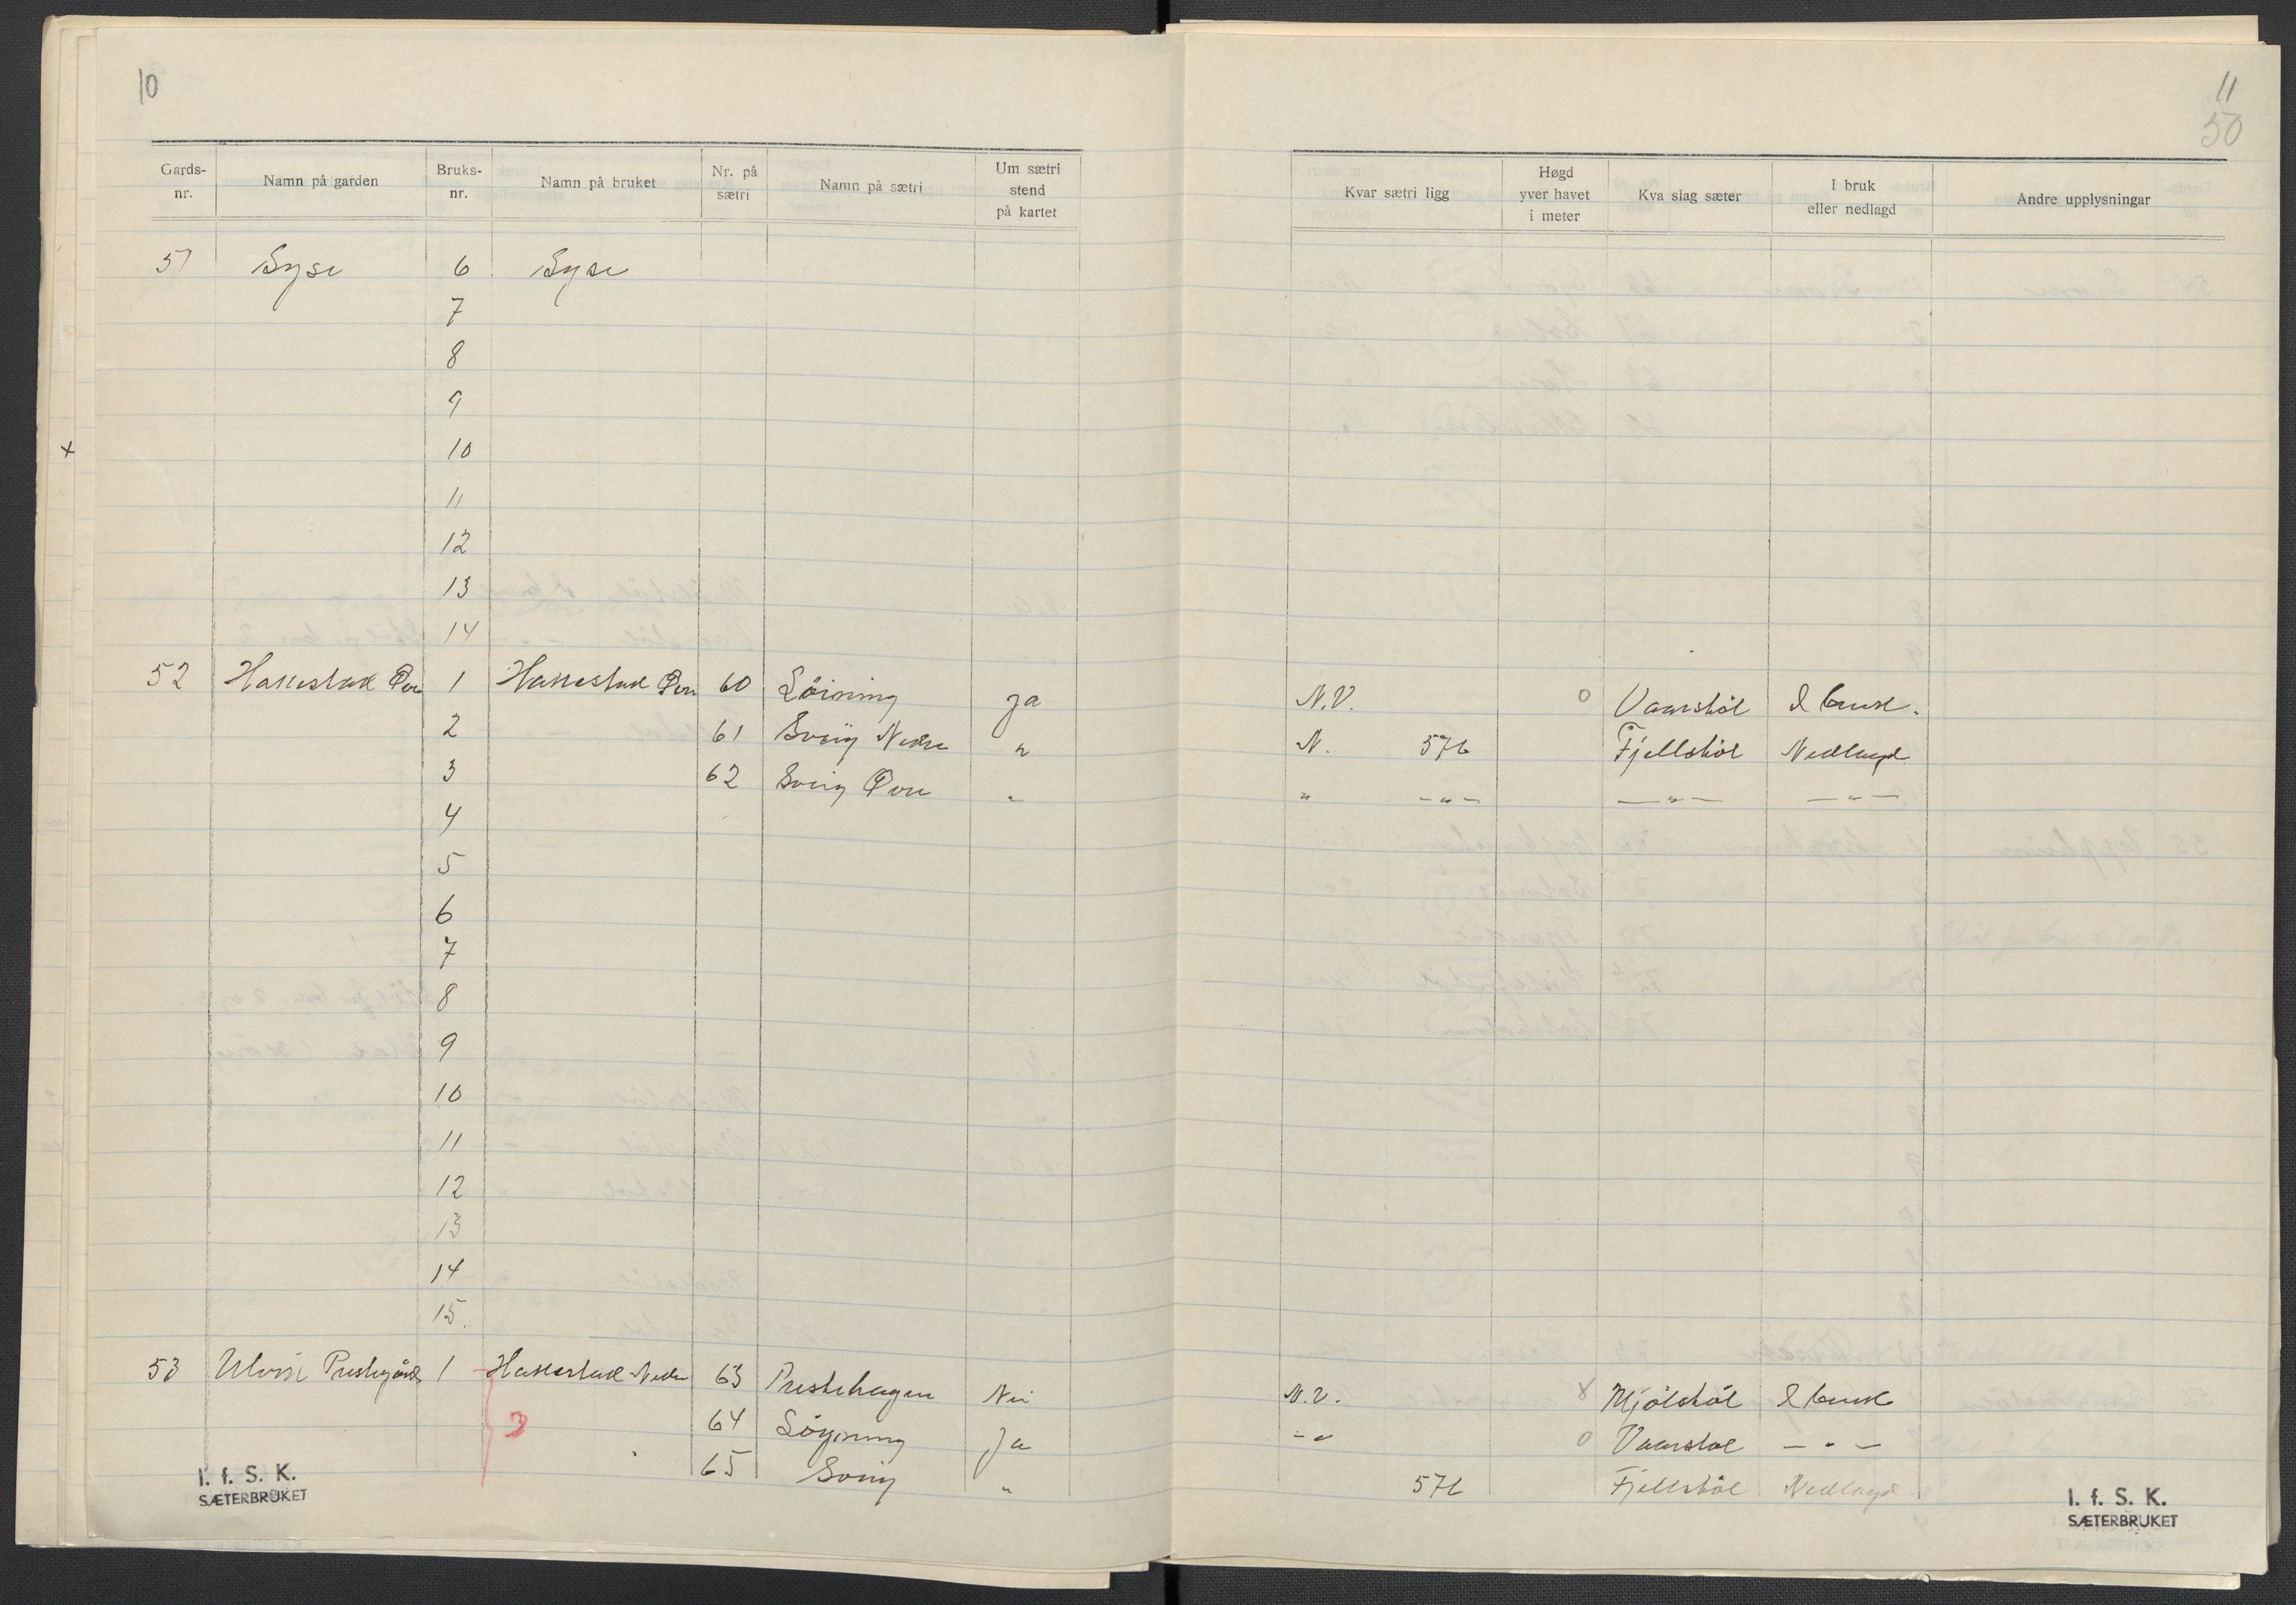 10
Gards-nr. Namn på garden Bruks-nr. Namn på bruket Nr. på sætri Namn på sætri Um sætri stend på kartet
51 Syse 6 Syse
7
8
9
10
11
12
13
14
52 Hakestad Øvre 1 Hakestad Øvre 60 Löining ja
2 61 Sveig Nedre "
3 62 Sveig Øvre "
4
5
6
7
8
9
10
11
12
13
14
15.
53 Ulvik Prestegård 1 Hakestad Nedre 63 Prestehagen Nei
3 64 Löyning Ja
65 Sveig "
I. f. S. K.
SÆTERBRUKET
11
50
Kvar sætri ligg Høgd yver havet i meter Kva slag sæter I bruk eller nedlagd Andre upplysningar
N.V. o Vaarstöl I bruk.
N. 576 Fjellstöl Nedlagd
" - " - — " — — " —
N.V. x Mjölstöl I bruk
- " o Vaarstöl — " —
576 Fjellstöl Nedlagd
I. f. S. K.
SÆTERBRUKET